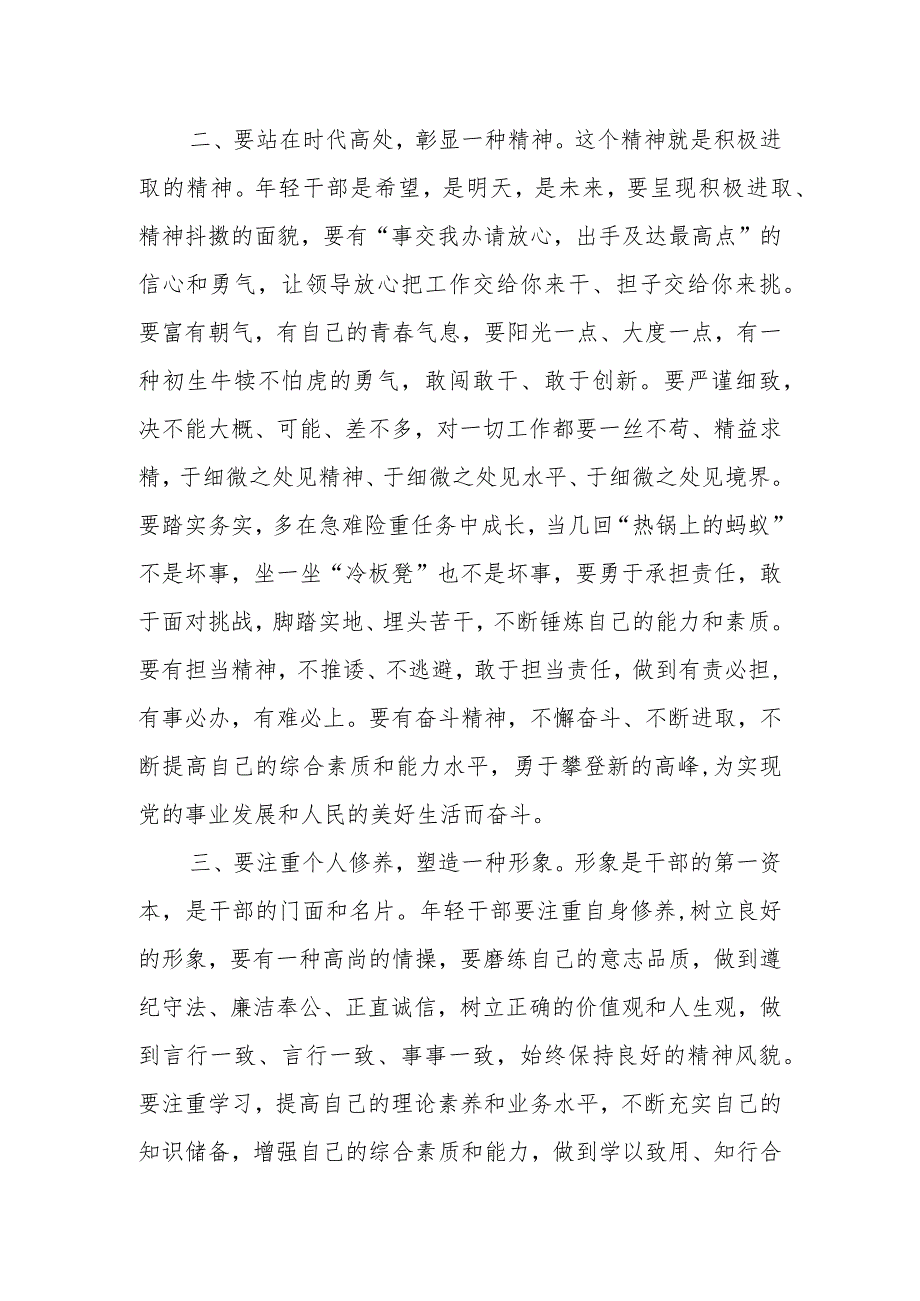 二、要站在时代高处，彰显一种精神。这个精神就是积极进
取的精神。年轻干部是希望，是明天，是未来，要呈现积极进取、
精神抖擞的面貌，要有“事交我办请放心，出手及达最高点”的
信心和勇气，让领导放心把工作交给你来干、担子交给你来挑。
要富有朝气，有自己的青春气息，要阳光一点、大度一点，有一
种初生牛犊不怕虎的勇气，敢闯敢干、敢于创新。要严谨细致，
决不能大概、可能、差不多，对一切工作都要一丝不苟、精益求
精，于细微之处见精神、于细微之处见水平、于细微之处见境界。
要踏实务实，多在急难险重任务中成长，当几回“热锅上的蚂蚁”
不是坏事，坐一坐“冷板凳”也不是坏事，要勇于承担责任，敢
于面对挑战，脚踏实地、埋头苦干，不断锤炼自己的能力和素质。
要有担当精神，不推诿、不逃避，敢于担当责任，做到有责必担，
有事必办，有难必上。要有奋斗精神，不懈奋斗、不断进取，不
断提高自己的综合素质和能力水平，勇于攀登新的高峰,为实现
党的事业发展和人民的美好生活而奋斗。
三、要注重个人修养，塑造一种形象。形象是干部的第一资
本，是干部的门面和名片。年轻干部要注重自身修养,树立良好
的形象，要有一种高尚的情操，要磨练自己的意志品质，做到遵
纪守法、廉洁奉公、正直诚信，树立正确的价值观和人生观，做
到言行一致、言行一致、事事一致，始终保持良好的精神风貌。
要注重学习，提高自己的理论素养和业务水平，不断充实自己的
知识储备，增强自己的综合素质和能力，做到学以致用、知行合